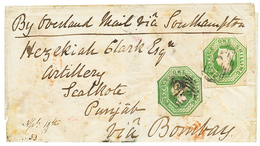 By Overland Mail via Southampton
Hezekiah Clark Esqr
Artillery
Sealkote
Punjab
via Bombay
ONE SHILLING
ONE SHILLING